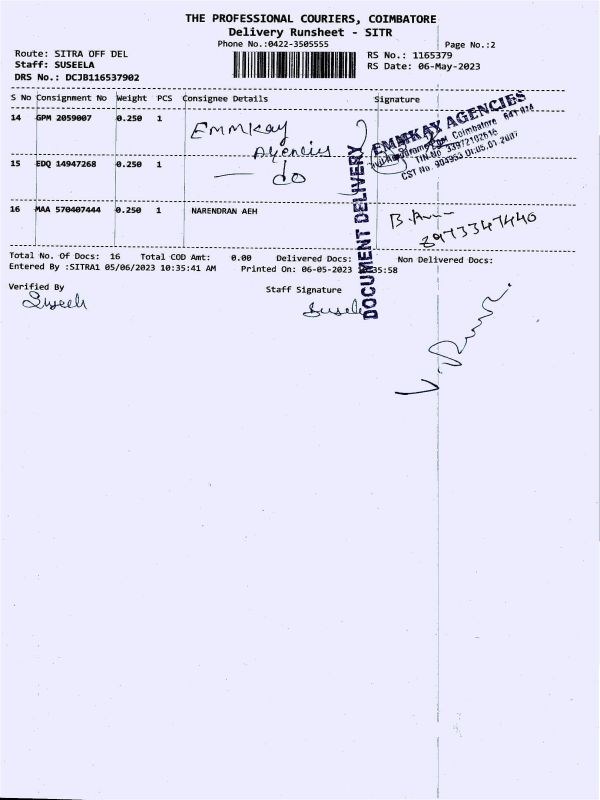 THE PROFESSIONAL COURIERS, COIMBATORE
Delivery Runsheet - SITR
Phone No.:0422-3505555 Page No.:2
Route: SITRA OFF DEL RS No.: 1165379
Staff: SUSEELA RS Date: 06-May-2023
DRS No.: DCJB116537902
S No Consignment No Weight PCS Consignee Details Signature
14 GPM 2059007 0.250 1 EMMKay Agencies
EMMKAY AGENCIES
Coimbatore 641 014
TIN No 33972102616
CST No. 904953 Dt.05.01.2007
15 EDQ 14947268 0.250 1 — do
DOCUMENT DELIVERY
16 MAA 570407444 0.250 1 NARENDRAN AEH
8973347440
Total No. Of Docs: 16 Total COD Amt: 0.00 Delivered Docs: Non Delivered Docs:
Entered By :SITRA1 05/06/2023 10:35:41 AM Printed On: 06-05-2023 35:58
Verified By Staff Signature
Suseela Suseela